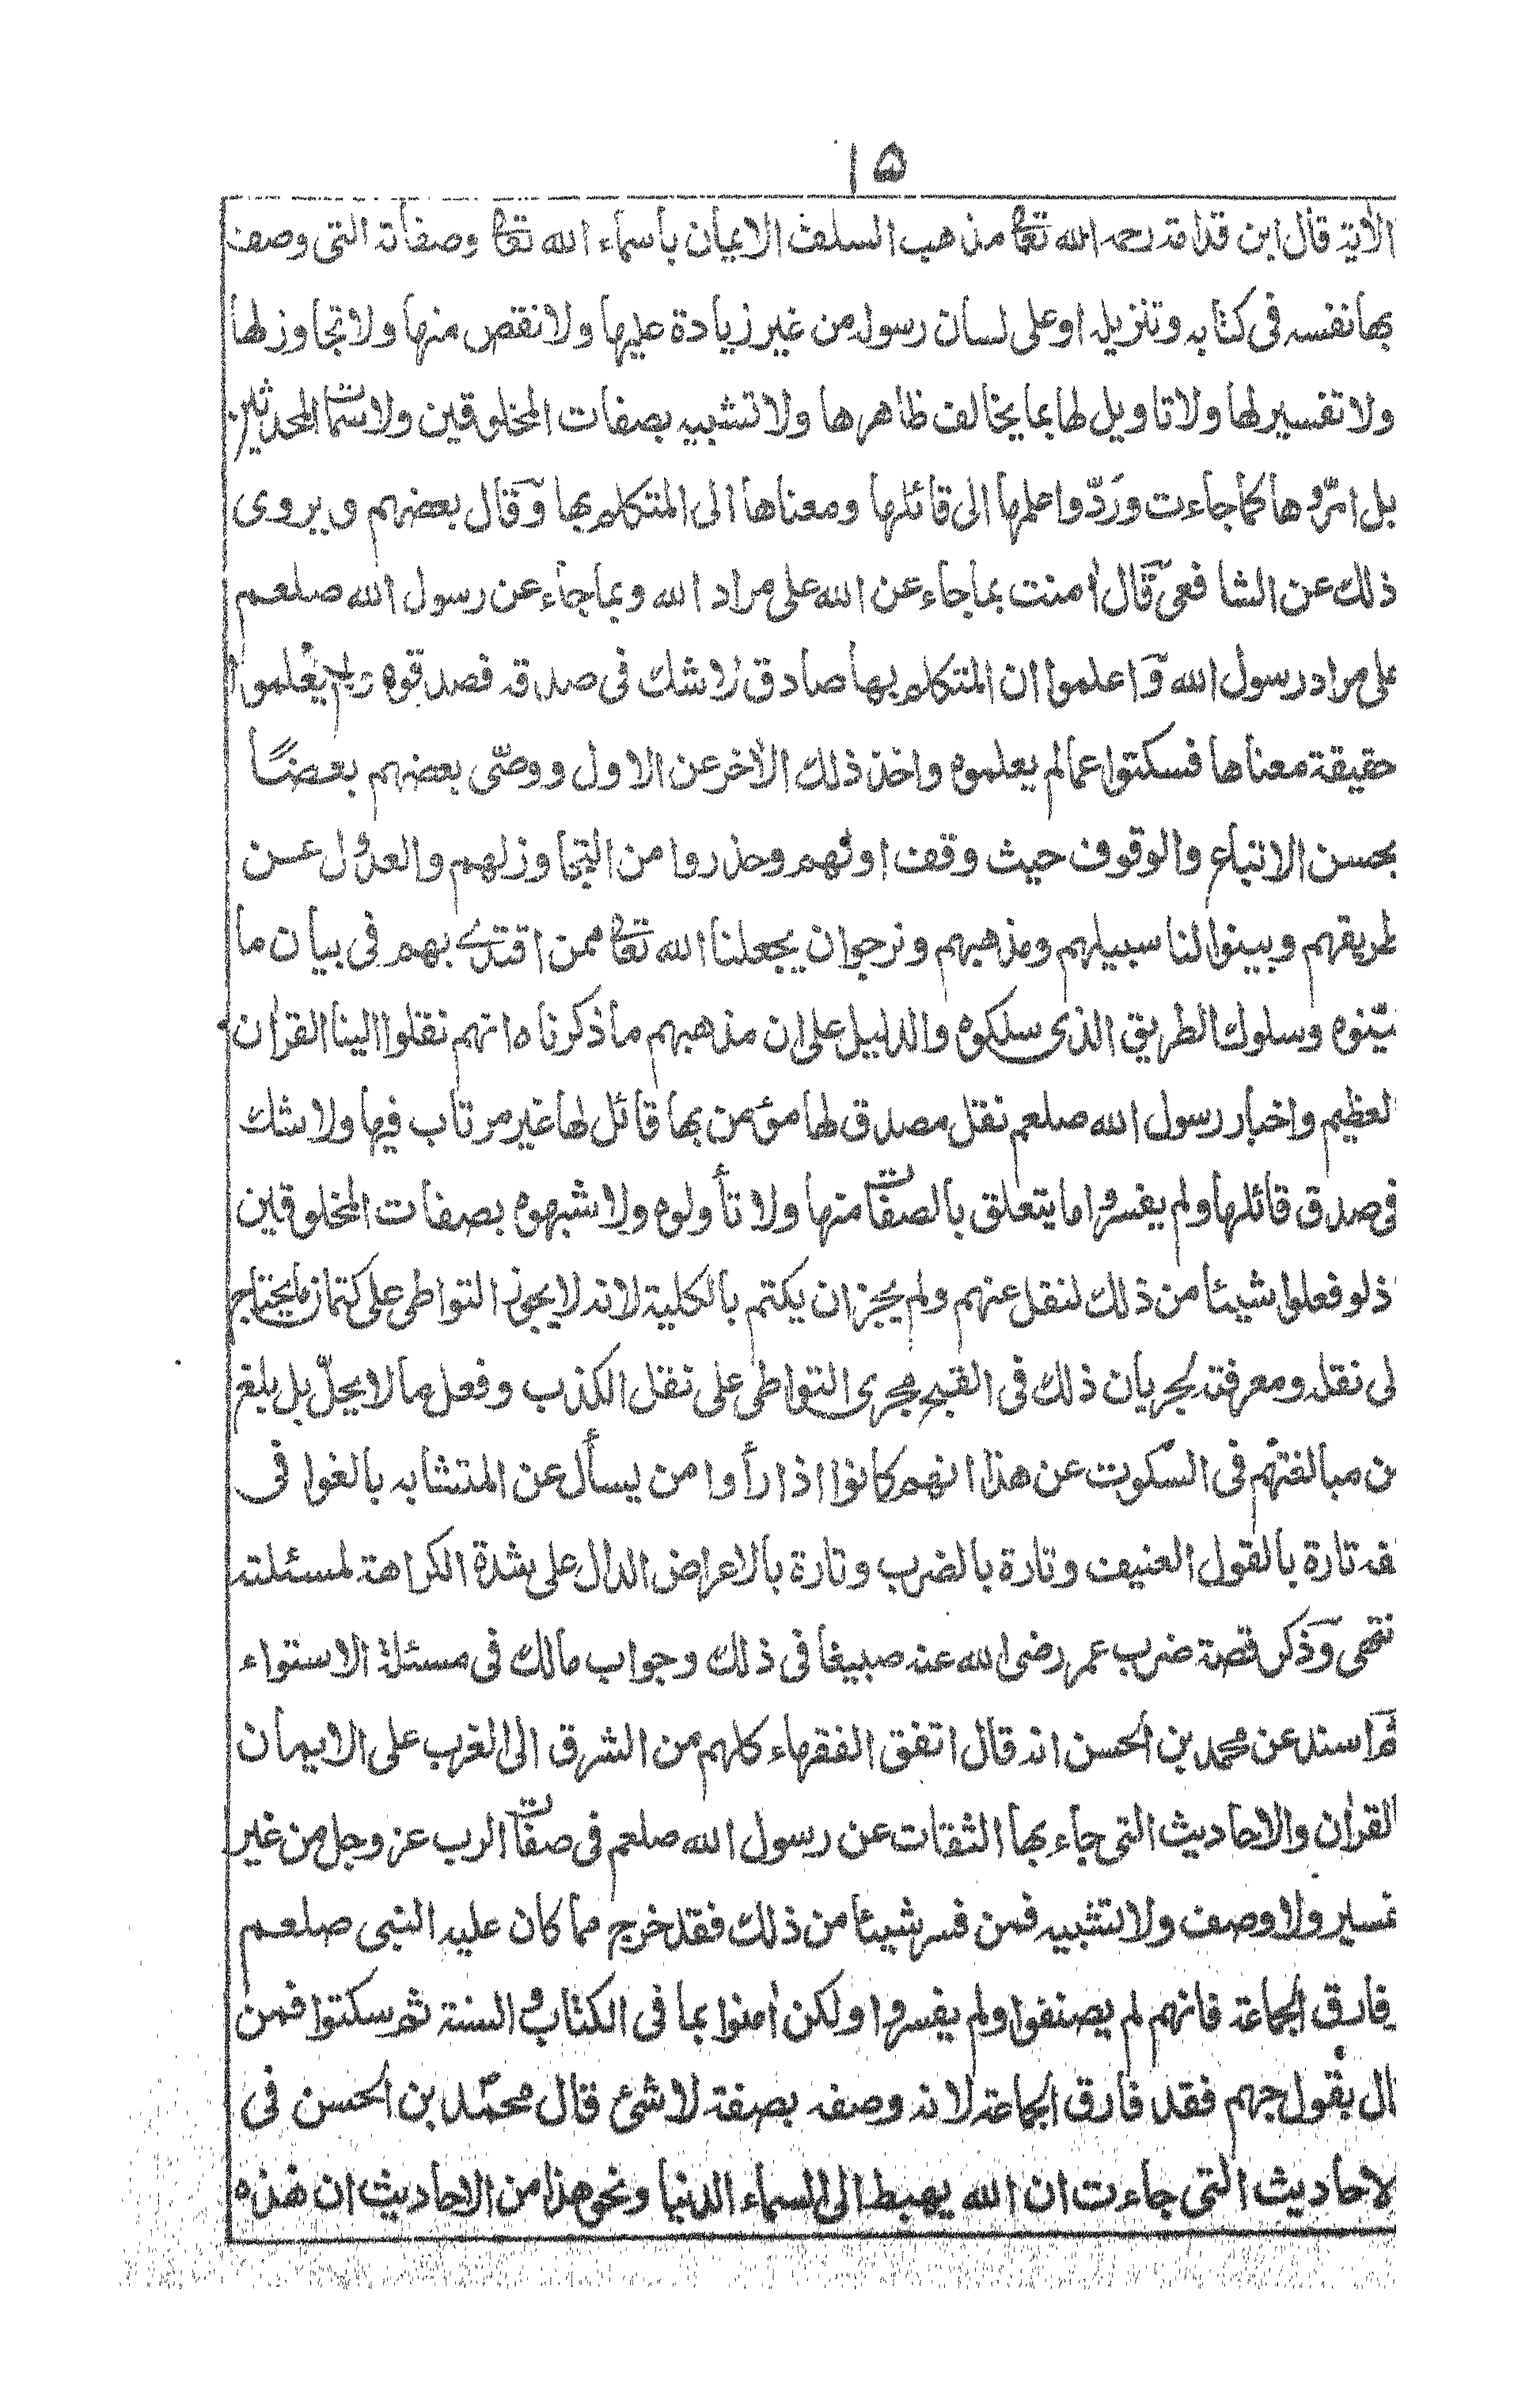 ١٥
الاٰية قال ابن قدامة رحمه الله تعا مذهب السلف الايمان باسماء الله تعا وصفاته التى وصف
بها نفسه فى كتابه وتنزيله او على لسان رسوله من غير زيادة عليها ولا نقص منها ولا تجاوز لها
ولا تفسير لها ولا تاويل لها بما يخالف ظاهرها ولا تشبيه بصفات المخلوقين ولا سمات المحدثين
بل امرّوها كما جاءت وردّوا علمها الى قائلها ومعناها الى المتكلم بها وقال بعضهم ويروى
ذلك عن الشافعى قال اٰمنت بما جاء عن الله على مراد الله وبما جاء عن رسول الله صلعم
على مراد رسول الله واعلموا ان المتكلم بها صادق لا شك فى صدقه فصدقوه ولم يعلموا
حقيقة معناها فسكتوا عما لم يعلموه واخذ ذلك الاٰخر عن الاول ووصّى بعضهم بعضًا
بحسن الاتباع والوقوف حيث وقف اولهم وحذروا من التجاوز لهم والعدول عن
طريقهم وبينوا لنا سبيلهم ومذهبهم ونرجوان يجعلنا الله تعا ممن اقتدى بهم فى بيان ما
بيّنوه وسلوك الطريق الذى سلكوه والدليل على ان مذهبهم ما ذكرناه انهم نقلوا الينا القراٰن
لعظيم واخبار رسول الله صلعم نقل مصدق لها مؤمن بها قائل لها غير مرتاب فيها ولا شك
فى صدق قائلها ولم يفسروا ما يتعلق بالصفات منها ولا تأولوه ولا شبهوه بصفات المخلوقين
ذ لو فعلوا شيئا من ذلك لنقل عنهم ولم يجز ان يكتم بالكلية لانه لا يجوز التواطى على كتمان ما يحتاج
لى نقله ومعرفته لجريان ذلك فى القبح مجرى التواطى على نقل الكذب وفعل ما لا يحلّ بل بلغ
من مبالغتهم فى السكوت عن هذا انهم كانوا اذا رأوا من يسأل عن المتشابه بالغوا فى
كفه تارة بالقول العنيف وتارة بالضرب وتارة بالاعراض الدال على شدة الكراهة لمسئلته
نتهى وذكر قصة ضرب عمر رضى الله عنه صبيغا فى ذلك وجواب مالك فى مسئلة الاستواء
ثم اسند عن محمد بن الحسن انه قال اتفق الفقهاء كلهم من الشرق الى الغرب على الايمان
القراٰن والاحاديث التى جاء بها الثقات عن رسول الله صلعم فى صفات الرب عز وجل من غير
تفسير ولا وصف ولا تشبيه فمن فسر شيئا من ذلك فقد خرج مما كان عليه النبى صلعم
وفارق الجماعة فانهم لم يصنفوا ولم يفسروا ولكن اٰمنوا بما فى الكتاب والسنة ثم سكتوا فمن
قال بقول جهم فقد فارق الجماعة لانه وصفه بصفة لا شئ قال محمّد بن الحسن فى
لاحاديث التى جاءت ان الله يهبط الى السماء الدنيا ونحو هذا من الاحاديث ان هٰذه